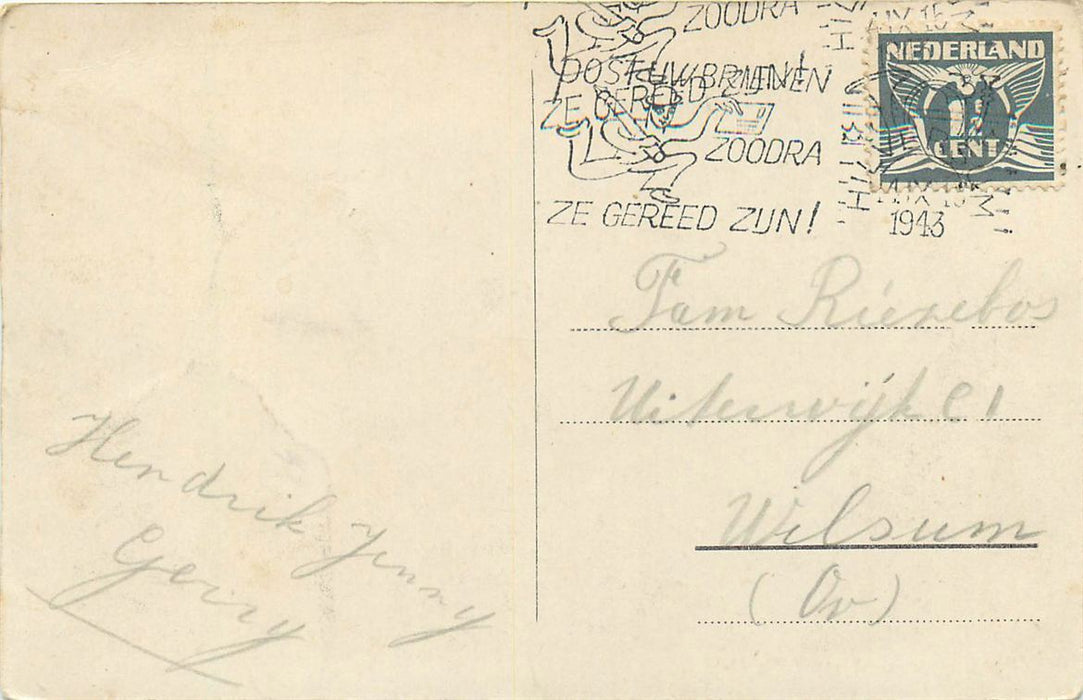 ZOODRA
POST UW BRIEVEN
ZE GEREED ZIJN!
ZOODRA
ZE GEREED ZIJN!
NEDERLAND
CENT
1943
Fam Rierebos
Uiterwijk C1
Wilsum
(Ov)
Hendrik Jenny
Gerry